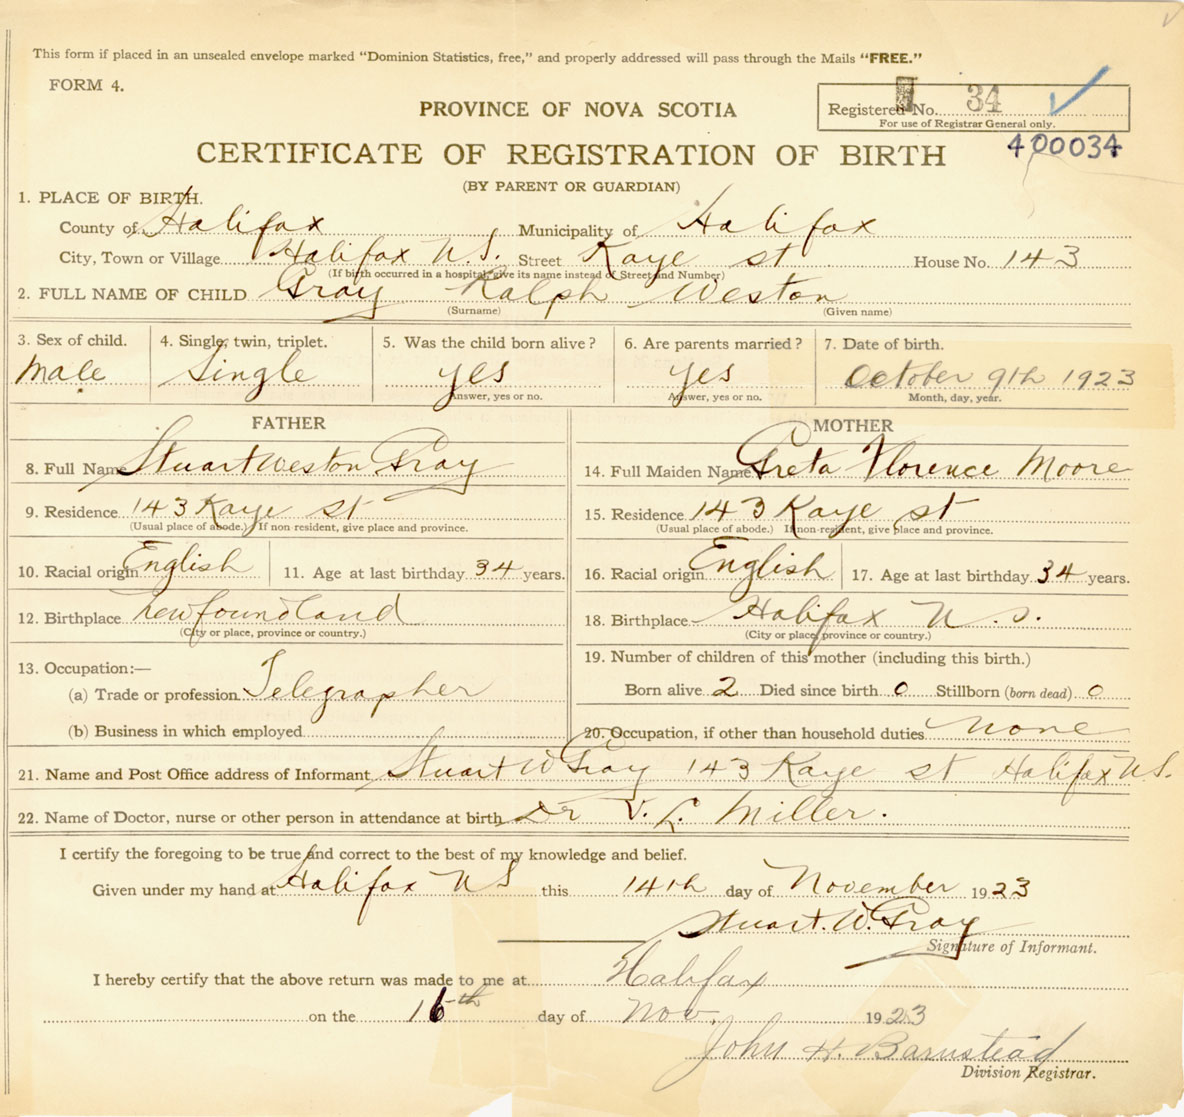 This form if placed in an unsealed envelope marked "Dominion Statistics, free," and properly addressed will pass through the Mails "FREE."
FORM 4.
PROVINCE OF NOVA SCOTIA
Registered No. 34
For use of Registrar General only.
400034
CERTIFICATE OF REGISTRATION OF BIRTH
(BY PARENT OR GUARDIAN)
1. PLACE OF BIRTH.
County of Halifax Municipality of Halifax
City, Town or Village Halifax N.S. Street Kaye st House No. 143
(If birth occurred in a hospital, give its name instead of Street and Number)
2. FULL NAME OF CHILD Gray Ralph Weston
(Surname) (Given name)
3. Sex of child. 4. Single, twin, triplet. 5. Was the child born alive? 6. Are parents married? 7. Date of birth.
Male Single yes yes October 9th 1923
Answer, yes or no. Answer, yes or no. Month, day, year.
FATHER MOTHER
8. Full Name Stuart Weston Gray 14. Full Maiden Name Greta Florence Moore
9. Residence 143 Kaye st 15. Residence 143 Kaye st
(Usual place of abode.) If non-resident, give place and province. (Usual place of abode.) If non-resident, give place and province.
10. Racial origin English 11. Age at last birthday 34 years. 16. Racial origin English 17. Age at last birthday 34 years.
12. Birthplace Newfoundland 18. Birthplace Halifax N.S.
(City or place, province or country.) (City or place, province or country.)
13. Occupation:— 19. Number of children of this mother (including this birth.)
(a) Trade or profession Telegrapher Born alive 2 Died since birth 0 Stillborn (born dead) 0
(b) Business in which employed 20. Occupation, if other than household duties None
21. Name and Post Office address of Informant Stuart W Gray 143 Kaye st Halifax N.S.
22. Name of Doctor, nurse or other person in attendance at birth Dr V. L. Miller.
I certify the foregoing to be true and correct to the best of my knowledge and belief.
Given under my hand at Halifax NS this 14th day of November 1923
Stuart. W. Gray
Signature of Informant.
I hereby certify that the above return was made to me at Halifax
on the 16th day of Nov. 1923
John H. Barnstead
Division Registrar.